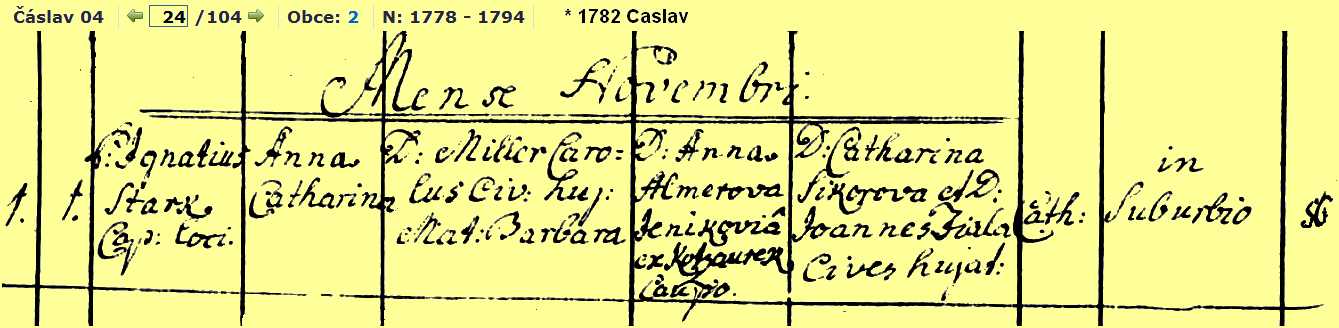 Čáslav 04 24 /104 Obce: 2 N: 1778 - 1794 * 1782 Caslav
Mense Novembri.
1. 1.
P: Ignatius
Stark
Cap: loci.
Anna
Catharina
D: Miller Caro=
lus Civ: huj:
Mat: Barbara
D: Anna
Almerova
Jenikoviâ
ex
Caupo.
D: Catharina
Sikorova et D:
Joannes Fiala
Cives hujat:
Cath:
in
Suburbio